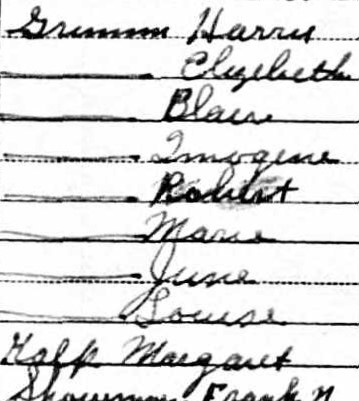 Grimm Harry
——— Elizebeth
——— Blair
——— Imogene
——— Robert
——— Marie
——— June
——— Louise
Margaret
Showman, Frank N